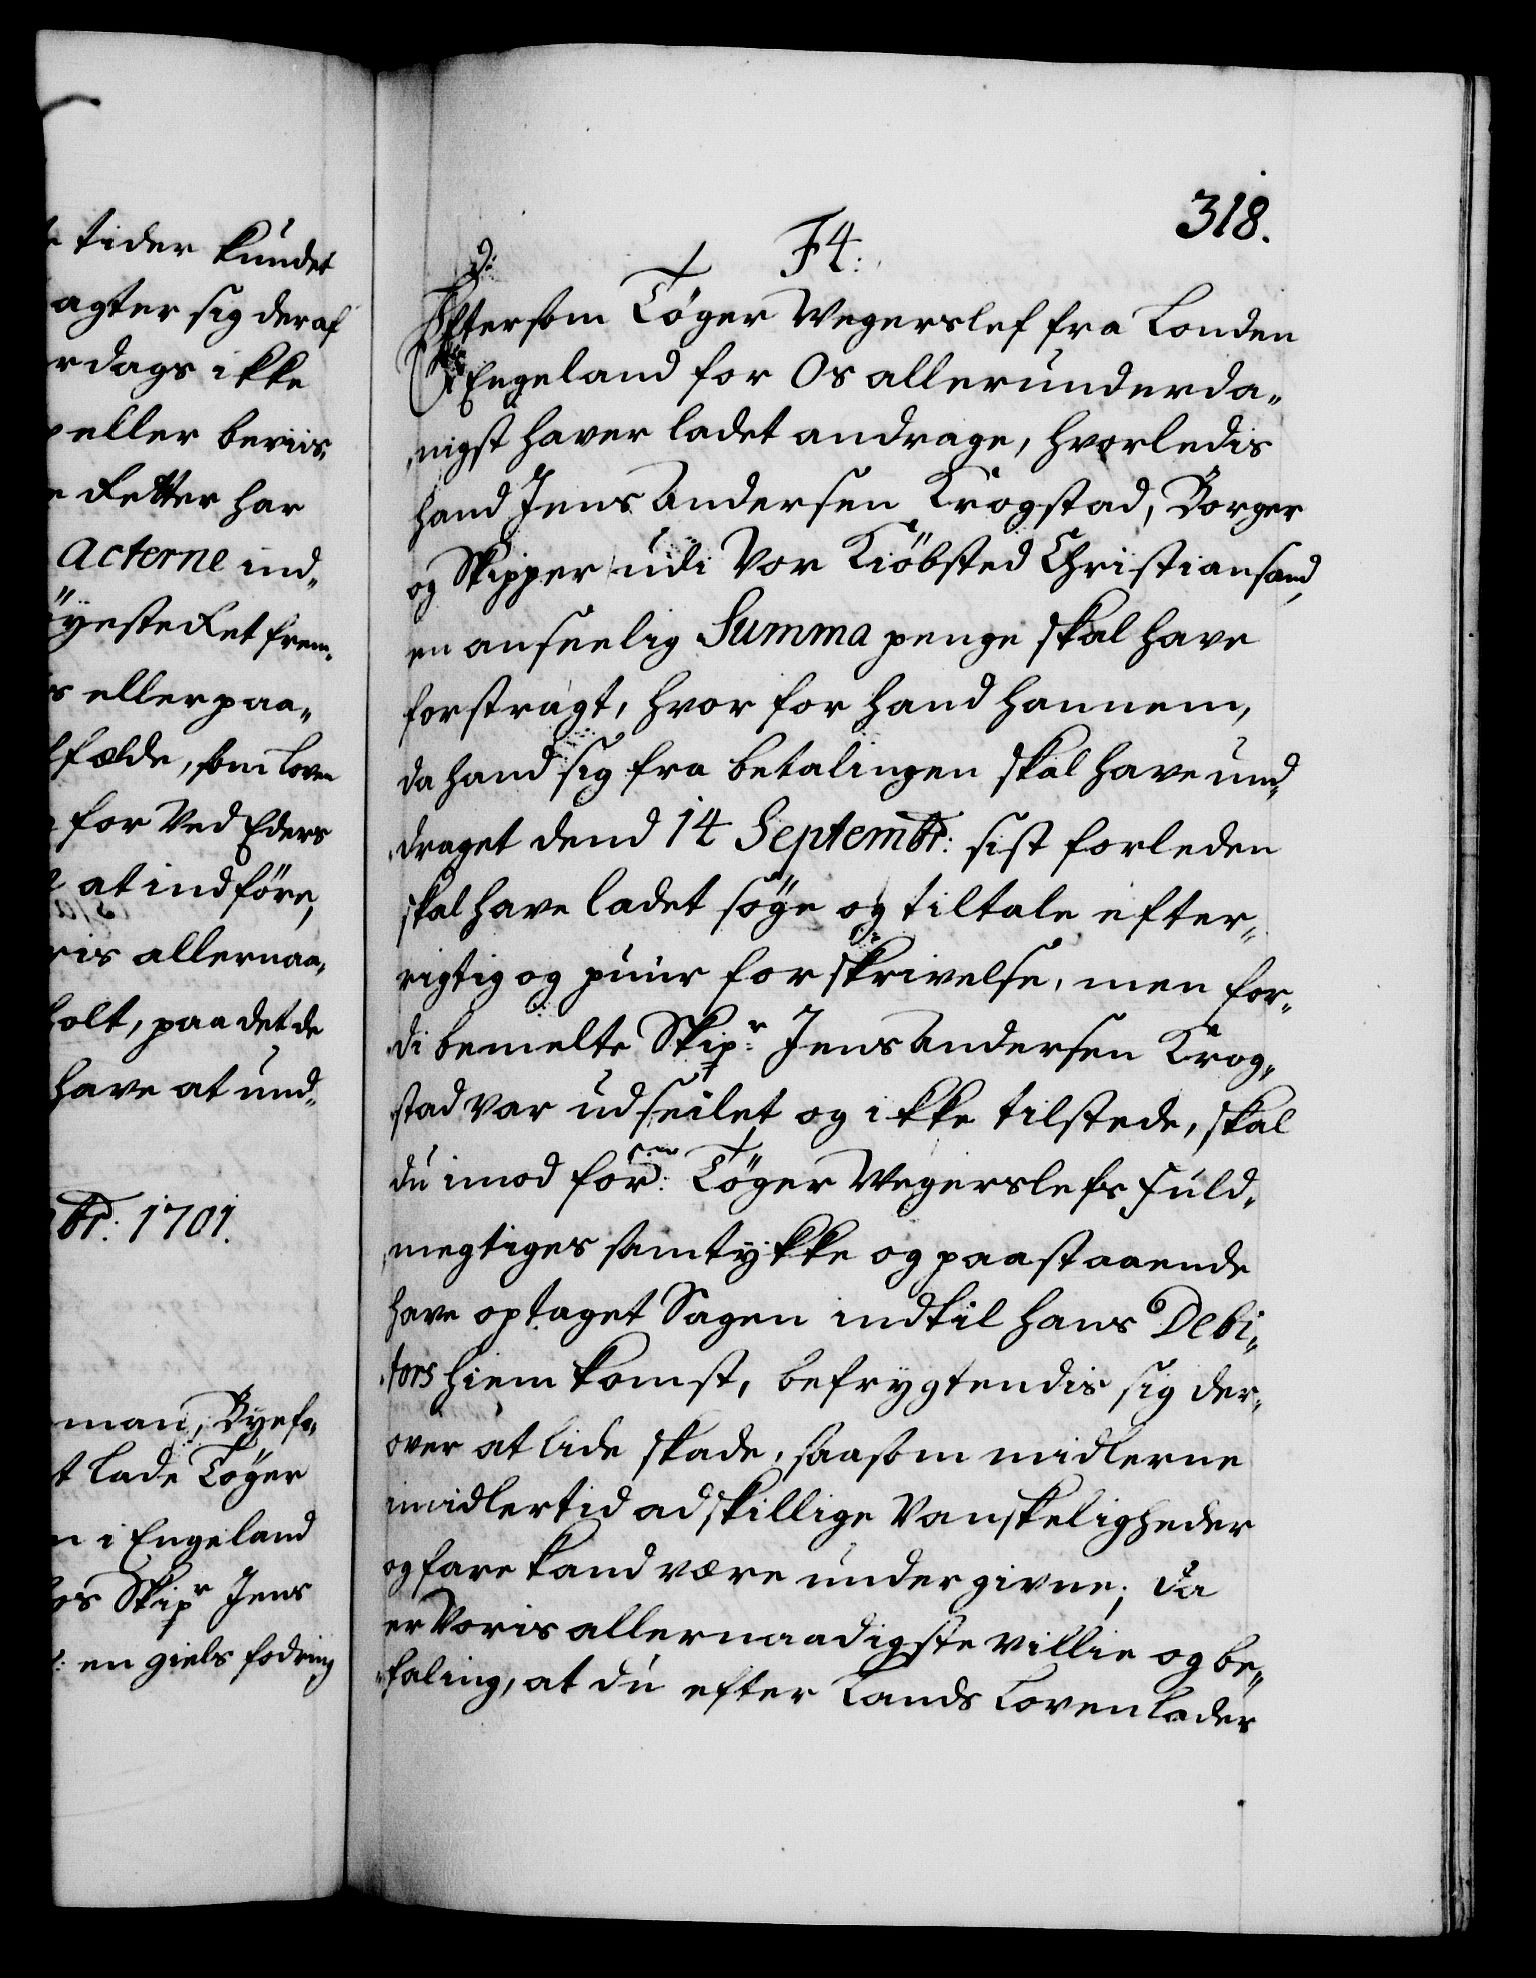 tider kundet
agter sig deraf
rdags ikke
eller beviis,
Retter har
Acterne ind„
yeste Ret frem„
eller paa„
fælde, som Loven
for Ved Eders
at indføre,
ris allernaa„
holt, paa det de
have at und„
br: 1701.
man, Byef„
t lade Tøger
n i Engeland
os Skipr Jens
en giels fodring
318.
F4:
Eftersom Tøger Wegerslef fra Londen
i Engeland for Os allerunderda„
nigst haver ladet andrage, hvorledis
hand Jens Andersen Krogstad, Borger
og Skipper udi Vor Kiöbsted Christiansand,
en anseelig Summa penge skal have
forstragt, hvor for hand hannem,
da hand sig fra betalingen skal have und„
draget dend 14 Septembr: sist forleden
skal have ladet søge og tiltale efter„
rigtig og puur forskrivelse, men for„
di bemelte Skipr: Jens Andersen Krog„
stad var udseilet og ikke tilstede, skal
du imod forne: Tøger Wegerslefs fuld„
megtiges samtykke og paastaaende
have optaget Sagen indtil hans Debi„
tors hiemkomst, befrygtendis sig der„
over at lide skade, saasom midlerne
imidlertid adskillige Vanskeligheder
og fare kand være undergivne; da
er Voris allernaadigste villie og be„
faling, at du efter Lands Loven lader